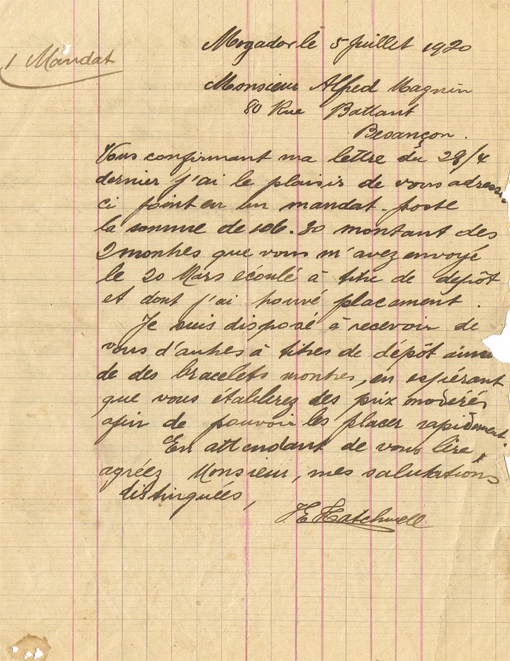 Mogador le 5 Juillet 1920
1 Mandat
Monsieur Alfred Magnin
80 Rue Battant
Besançon.
Vous confirmant ma lettre du 28/4
dernier j'ai le plaisir de vous adresser
ci joint en un mandat-poste
la somme de 106.80 montant des
2 montres que vous m'avez envoyé
le 20 Mars écoulé à titre de depôt
et dont j'ai trouvé placement.
Je suis disposé à recevoir de
vous d'autres à titres de dépôt ainsi
de des bracelets montres, en espérant
que vous etablirez des prix modérés
afin de pouvoir les placer rapidement.
En attendant de vous lire,
agréez Monsieur, mes salutations
distinguées,